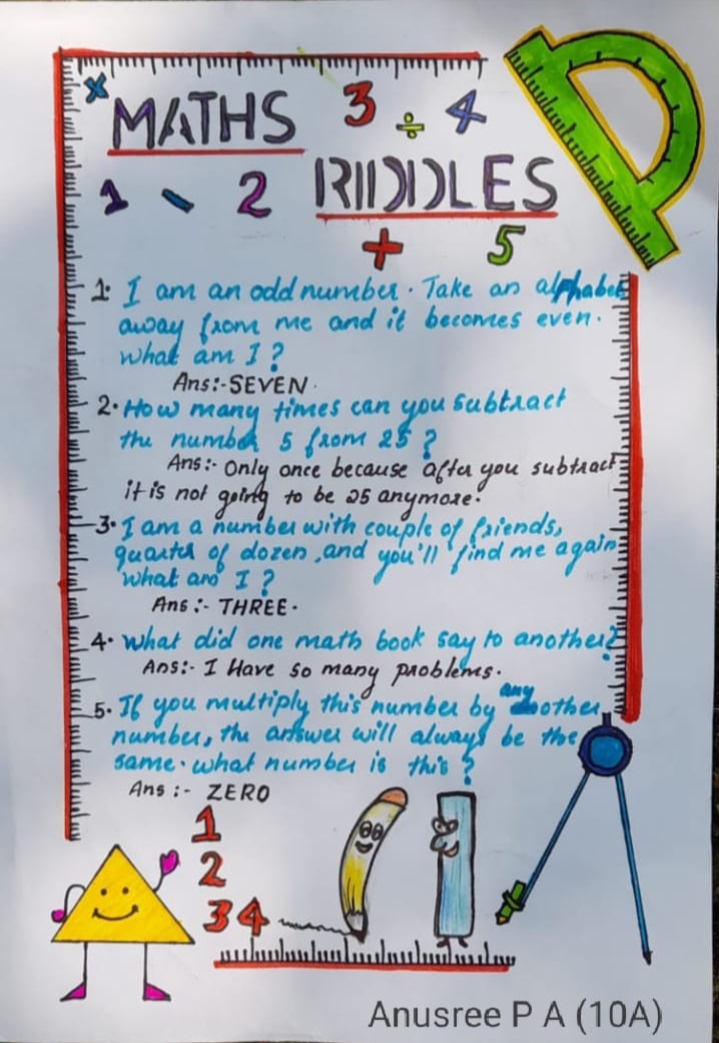 ×
MATHS 3 ÷ 4
1 - 2 RIDDLES
+ 5
1. I am an odd number. Take an alphabet
away from me and it becomes even.
what am I?
Ans:- SEVEN.
2. How many times can you subtract
the number 5 from 25?
Ans:- Only once because after you subtract
it is not going to be 25 anymore.
3. I am a number with couple of friends,
quarter of dozen, and you'll find me again
what am I?
Ans:- THREE.
4. what did one math book say to another?
Ans:- I Have so many problems.
5. If you multiply this number by any other
number, the answer will always be the
same. what number is this?
Ans:- ZERO
1
2
3 4
Anusree P A (10A)